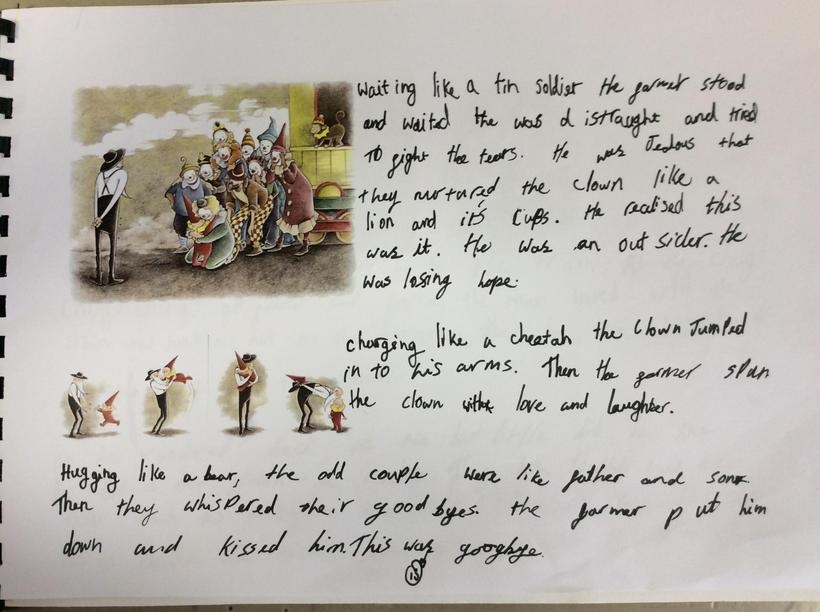 waiting like a tin soldier the farmer stood
and waited the was d istraught and tried
To fight the tears. He was Jealous that
they nurtured the clown like a
lion and it's Cups. He realised this
was it. He was an out sider. He
was losing hope.
charging like a cheetah the Clown Jumped
in to his arms. Then the farmer span
the clown with love and laughter.
Hugging like a bear, the odd couple were like father and son.
Then they whispered their good byes. the farmer p ut him
down and kissed him. This was googbye.